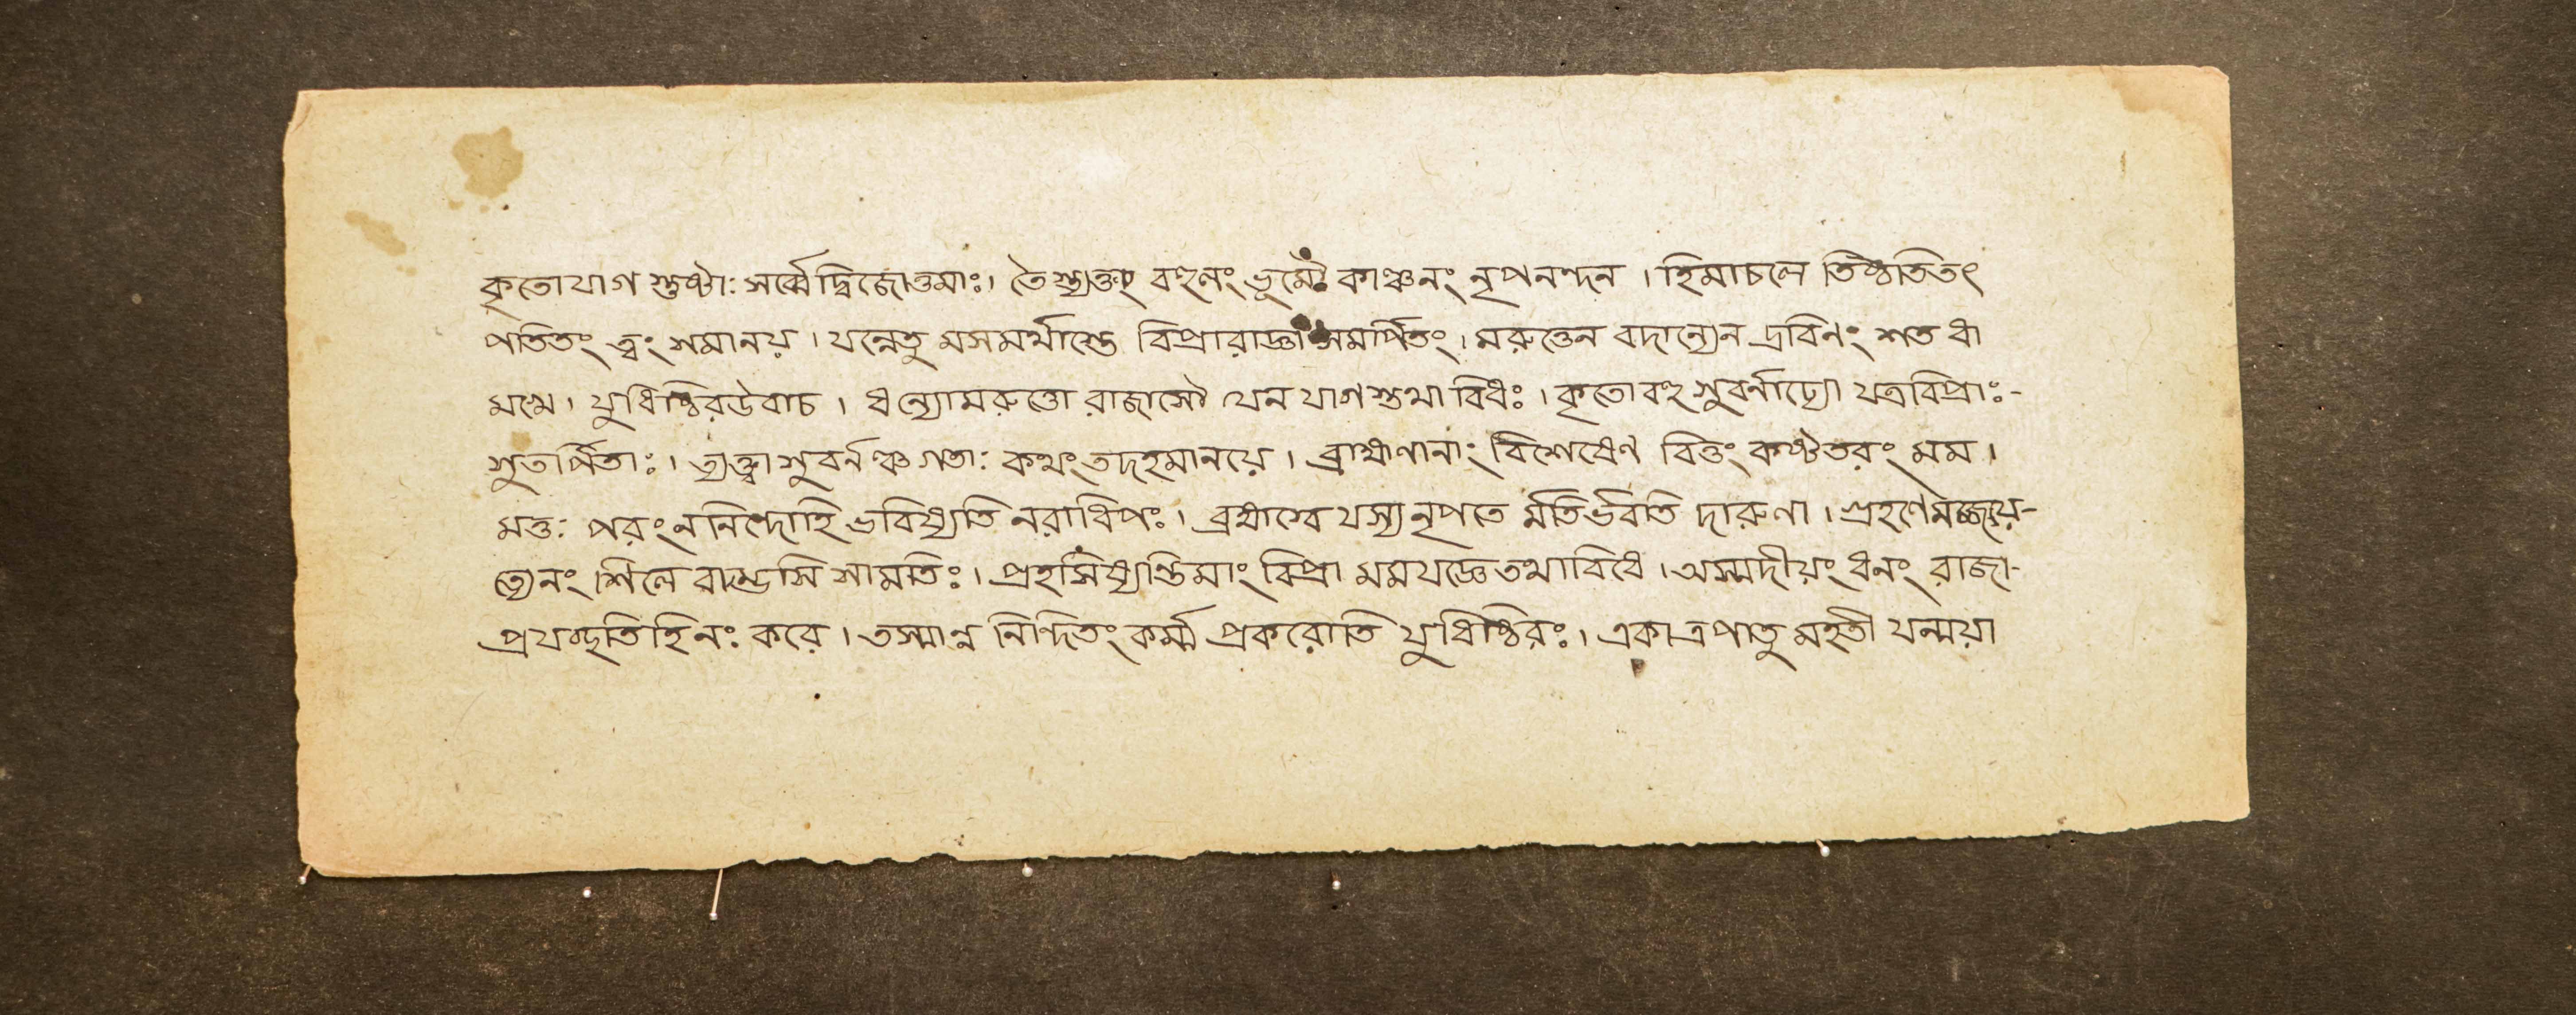 কৃতোযাগ স্তুষ্টা: সর্ব্বেদ্বিজোত্তমাঃ। তৈস্ত্যক্তং বহুলং ভূমৌ কাঞ্চনং নৃপনন্দন । হিমাচলে তিষ্ঠতিতৎ
পতিতং ত্বং সমানয় । যন্নেতু মসমর্থাস্তে বিপ্রারাজ্ঞা সমর্পিতং। মরুত্তেন বদান্যেন দ্রবিনং শত ধা
মখে। যুধিষ্ঠিরউবাচ । ধন্যোমরুত্তো রাজাসৌ যেন যাগস্তথা বিধঃ । কৃতোবহু সুবর্নাঢ্যো যত্রবিপ্রাঃ-
সুতর্পিতাঃ। ত্যক্ত্বা সুবর্নঞ্চ গতা: কথং তদহমানয়ে । ব্রাহ্মণানাং বিশেষেণ বিত্তং কষ্টতরং মম ।
মত্ত: পরং ননিন্দ্যোহি ভবিষ্যতি নরাধিপঃ । ব্রহ্মস্বে যস্য নৃপতে র্মতির্ভবতি দারুণা । গ্রহণেমজ্জয়-
ত্যেনং শিলে বাম্ভসি সামতিঃ। প্রহসিষ্যন্তিমাং বিপ্রা মমযজ্ঞেতথাবিধে । অস্মদীয়ং ধনং রাজা-
প্রযচ্ছতিহিনঃ করে । তস্মান্ন নিন্দিতং কর্ম্ম প্রকরোতি যুধিষ্ঠিরঃ। একাত্রপাতু মহতী যন্ময়া